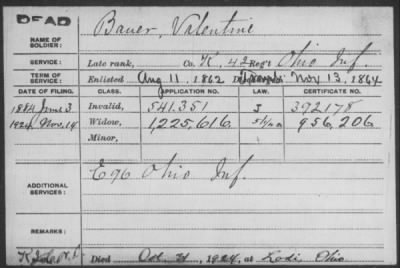 DEAD
NAME OF SOLDIER: Bauer, Valentine
SERVICE: Late rank, Co. K, 42 Reg't Ohio Inf.
TERM OF SERVICE: Enlisted Aug 11, 1862 Nov 13, 1864
DATE OF FILING. CLASS. APPLICATION NO. LAW. CERTIFICATE NO.
1884 June 3 Invalid, 541.351 J 392178
1924 Nov. 14 Widow, 1,225,616. 956,206
Minor,
ADDITIONAL SERVICES: E 96 Ohio Inf.
REMARKS:
Died Oct. 1924, at Lodi, Ohio